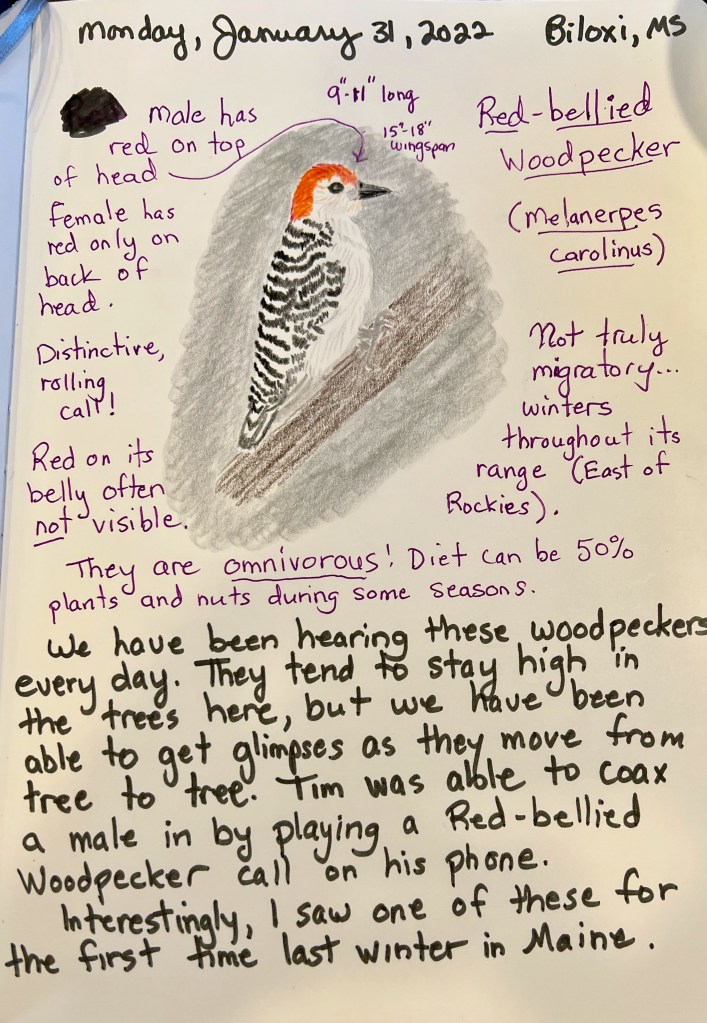 Monday, January 31, 2022 Biloxi, MS
male has
red on top
of head
Female has
red only on
back of
head.
Distinctive,
rolling
call!
Red on its
belly often
not visible.
9"-11" long
15"-18"
wingspan
Red-bellied
Woodpecker
(Melanerpes
carolinus)
Not truly
migratory...
winters
throughout its
range (East of
Rockies).
They are omnivorous! Diet can be 50%
plants and nuts during some seasons.
We have been hearing these woodpeckers
every day. They tend to stay high in
the trees here, but we have been
able to get glimpses as they move from
tree to tree. Tim was able to coax
a male in by playing a Red-bellied
Woodpecker call on his phone.
Interestingly, I saw one of these for
the first time last winter in Maine.